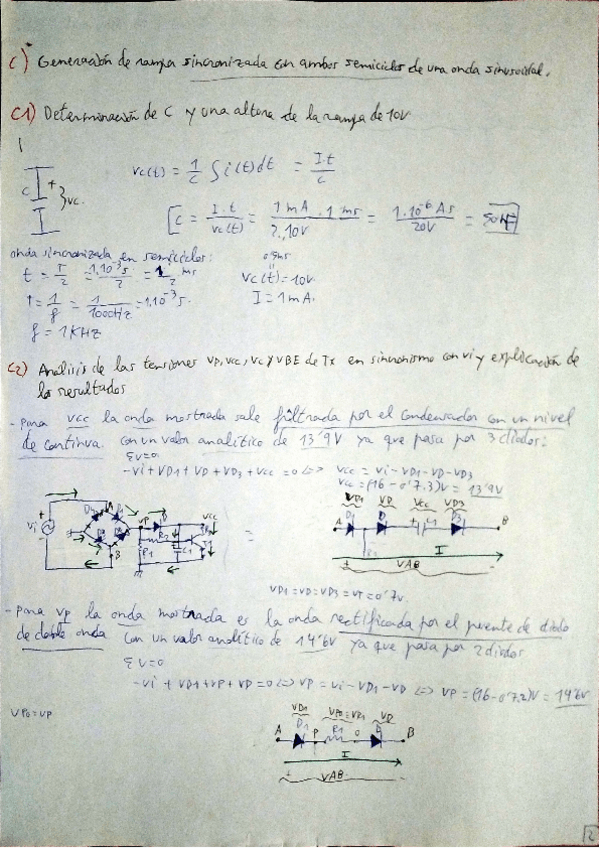 C) Generación de rampa sincronizada con ambos semiciclos de una onda sinusoidal.
C1) Determinación de C y una altura de la rampa de 10V
C + } vc.
vc(t) = 1/C ∫ i(t) dt = I.t/C
[C = I.t/vc(t) = 1 mA . 1 ms/2.10V = 1.10^-6 As/20V = 50nF
onda sincronizada en semiciclos:
t = T/2 = 1.10^-3 s/2 = 1/2 ms
0,5ms
vc(t) = 10V
T = 1/f = 1/1000Hz = 1.10^-3 s.
I = 1mA.
f = 1KHz
C2) Análisis de las tensiones VP, VCC, VC y VBE de Tx en sincronismo con vi y explicación de
los resultados
- Para VCC la onda mostrada sale filtrada por el condensador con un nivel
de continua. con un valor analítico de 13'9V ya que pasa por 3 diodos:
ΣV=0
-Vi + VD1 + VD + VD3 + VCC = 0 <=> VCC = Vi - VD1 - VD - VD3
VCC = (16 - 0'7.3)V = 13'9V
VD1 VD VCC VD3
Vi + A B VP D VCC R1 C1
=
A D1 D + C1 D3 B
I
+ VAB -
VD1 = VD = VD3 = VT = 0'7V.
- Para VP la onda mostrada es la onda rectificada por el puente de diodo
de doble onda con un valor analítico de 14'6V ya que pasa por 2 diodos
ΣV=0
-Vi + VD1 + VP + VD = 0 <=> VP = Vi - VD1 - VD <=> VP = (16 - 0'7.2)V = 14'6V
VP0 = VP
VD1 VP0 = VP1 VD
A D1 P R1 0 D B
I
+ VAB -
2